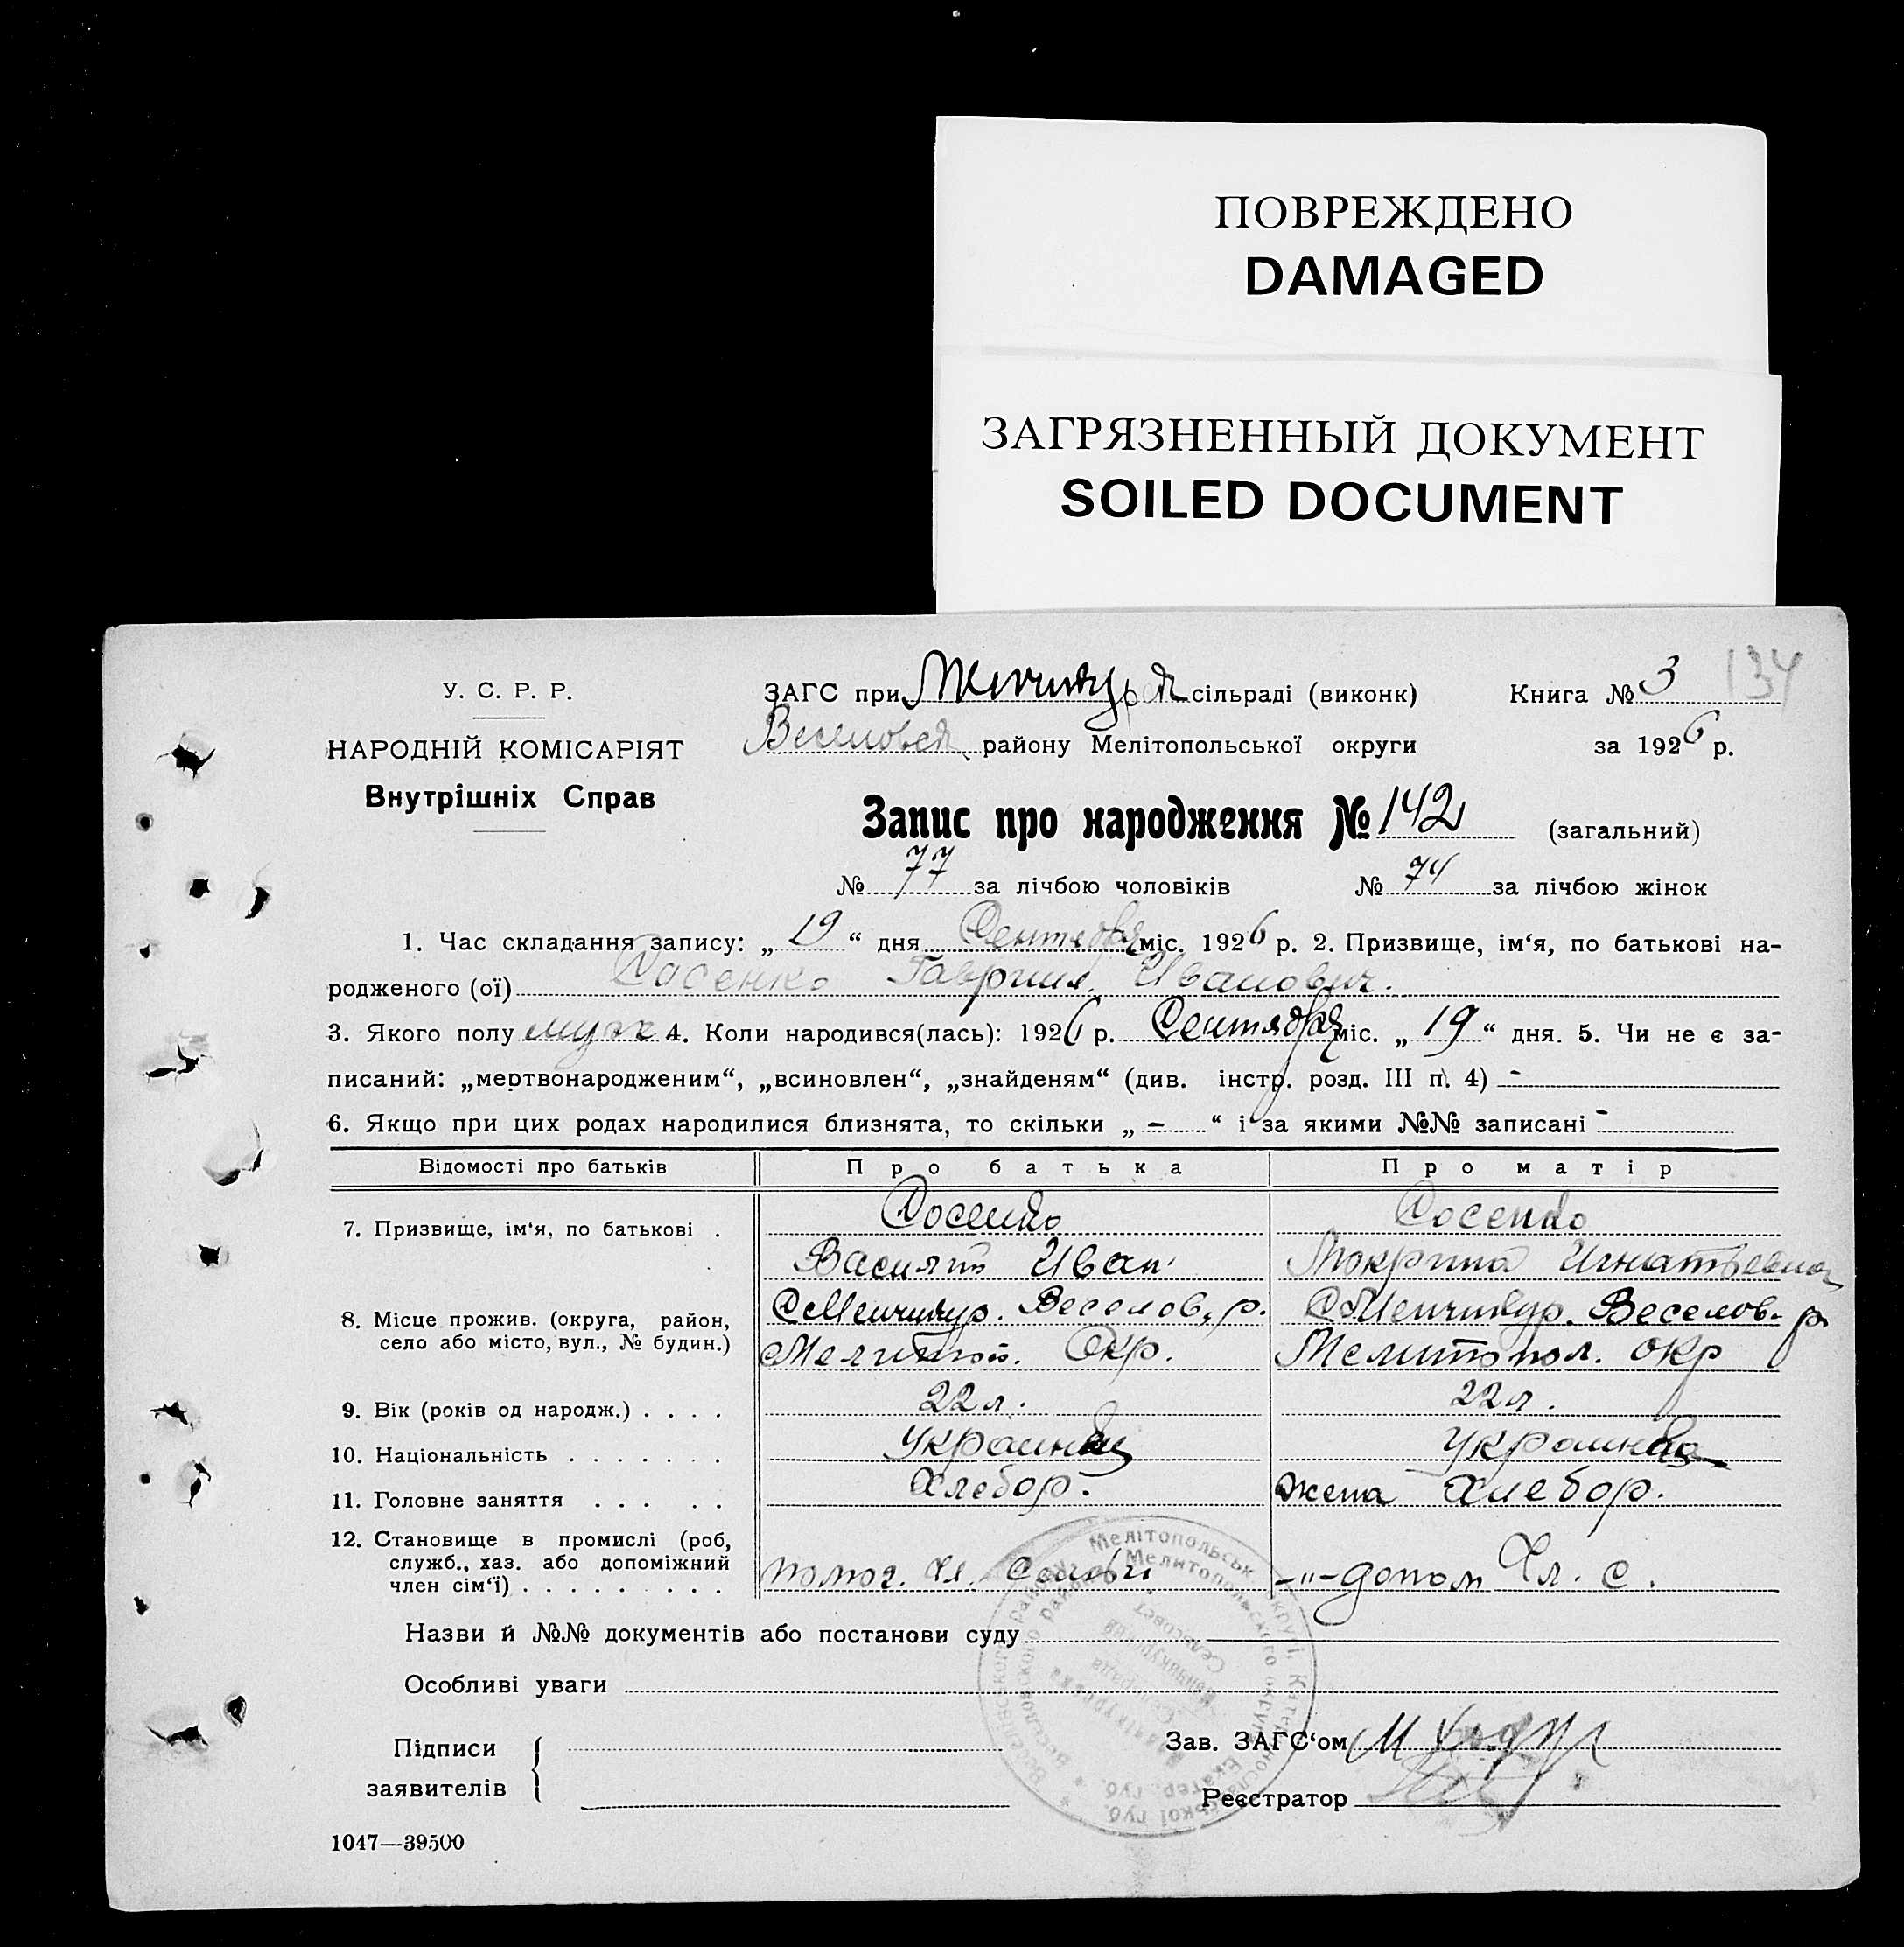 ПОВРЕЖДЕНО
DAMAGED
ЗАГРЯЗНЕННЫЙ ДОКУМЕНТ
SOILED DOCUMENT
У. С. Р. Р.
НАРОДНІЙ КОМІСАРІЯТ
Внутрішніх Справ
ЗАГС при сільраді (виконк)
Книга № 3 134
района Мелітопольської округи
за 1926 р.
Запис про народження № 142 (загальний)
№ 77 за лічбою чоловіків № 74 за лічбою жінок
1. Час складання запису: „ 19 “ дня Сентября міс. 1926 р. 2. Призвище, ім‘я, по батькові на-
родженого (ої) Сосенко Гавриил Иванович.
3. Якого полу муж 4. Коли народився(лась): 1926 р. Сентября міс. „ 19 “ дня. 5. Чи не є за-
писаний: „мертвонародженим“, „всиновлен“, „знайденям“ (див. інстр. розд. III п. 4) -
6. Якщо при цих родах народилися близнята, то скільки „ - “ і за якими №№ записані -
Відомості про батьків Про батька Про матір
7. Призвище, ім‘я, по батькові . Сосенко Сосенко
Василий Иван Мокрина Игнатьевна
8. Місце прожив. (округа, район, село або місто, вул., № будин.) С Менчикур. Веселов. р. С Менчикур. Веселов. р
Мелитоп. Окр. Мелитопол. окр
9. Вік (років од народж.) . . . . 22 л. 22 л.
10. Національність . . . . . . . Украинец Украинка
11. Головне заняття . . . . . Хлебор. жена Хлебор.
12. Становище в промислі (роб, служб., хаз. або допоміжний член сім‘ї) . . . . . . . . . помог. Чл. Семьи -"- допом Чл. С.
Назви й №№ документів або постанови суду
Особливі уваги
Підписи
заявителів
Зав. ЗАГС‘ом
Реєстратор
1047—39500